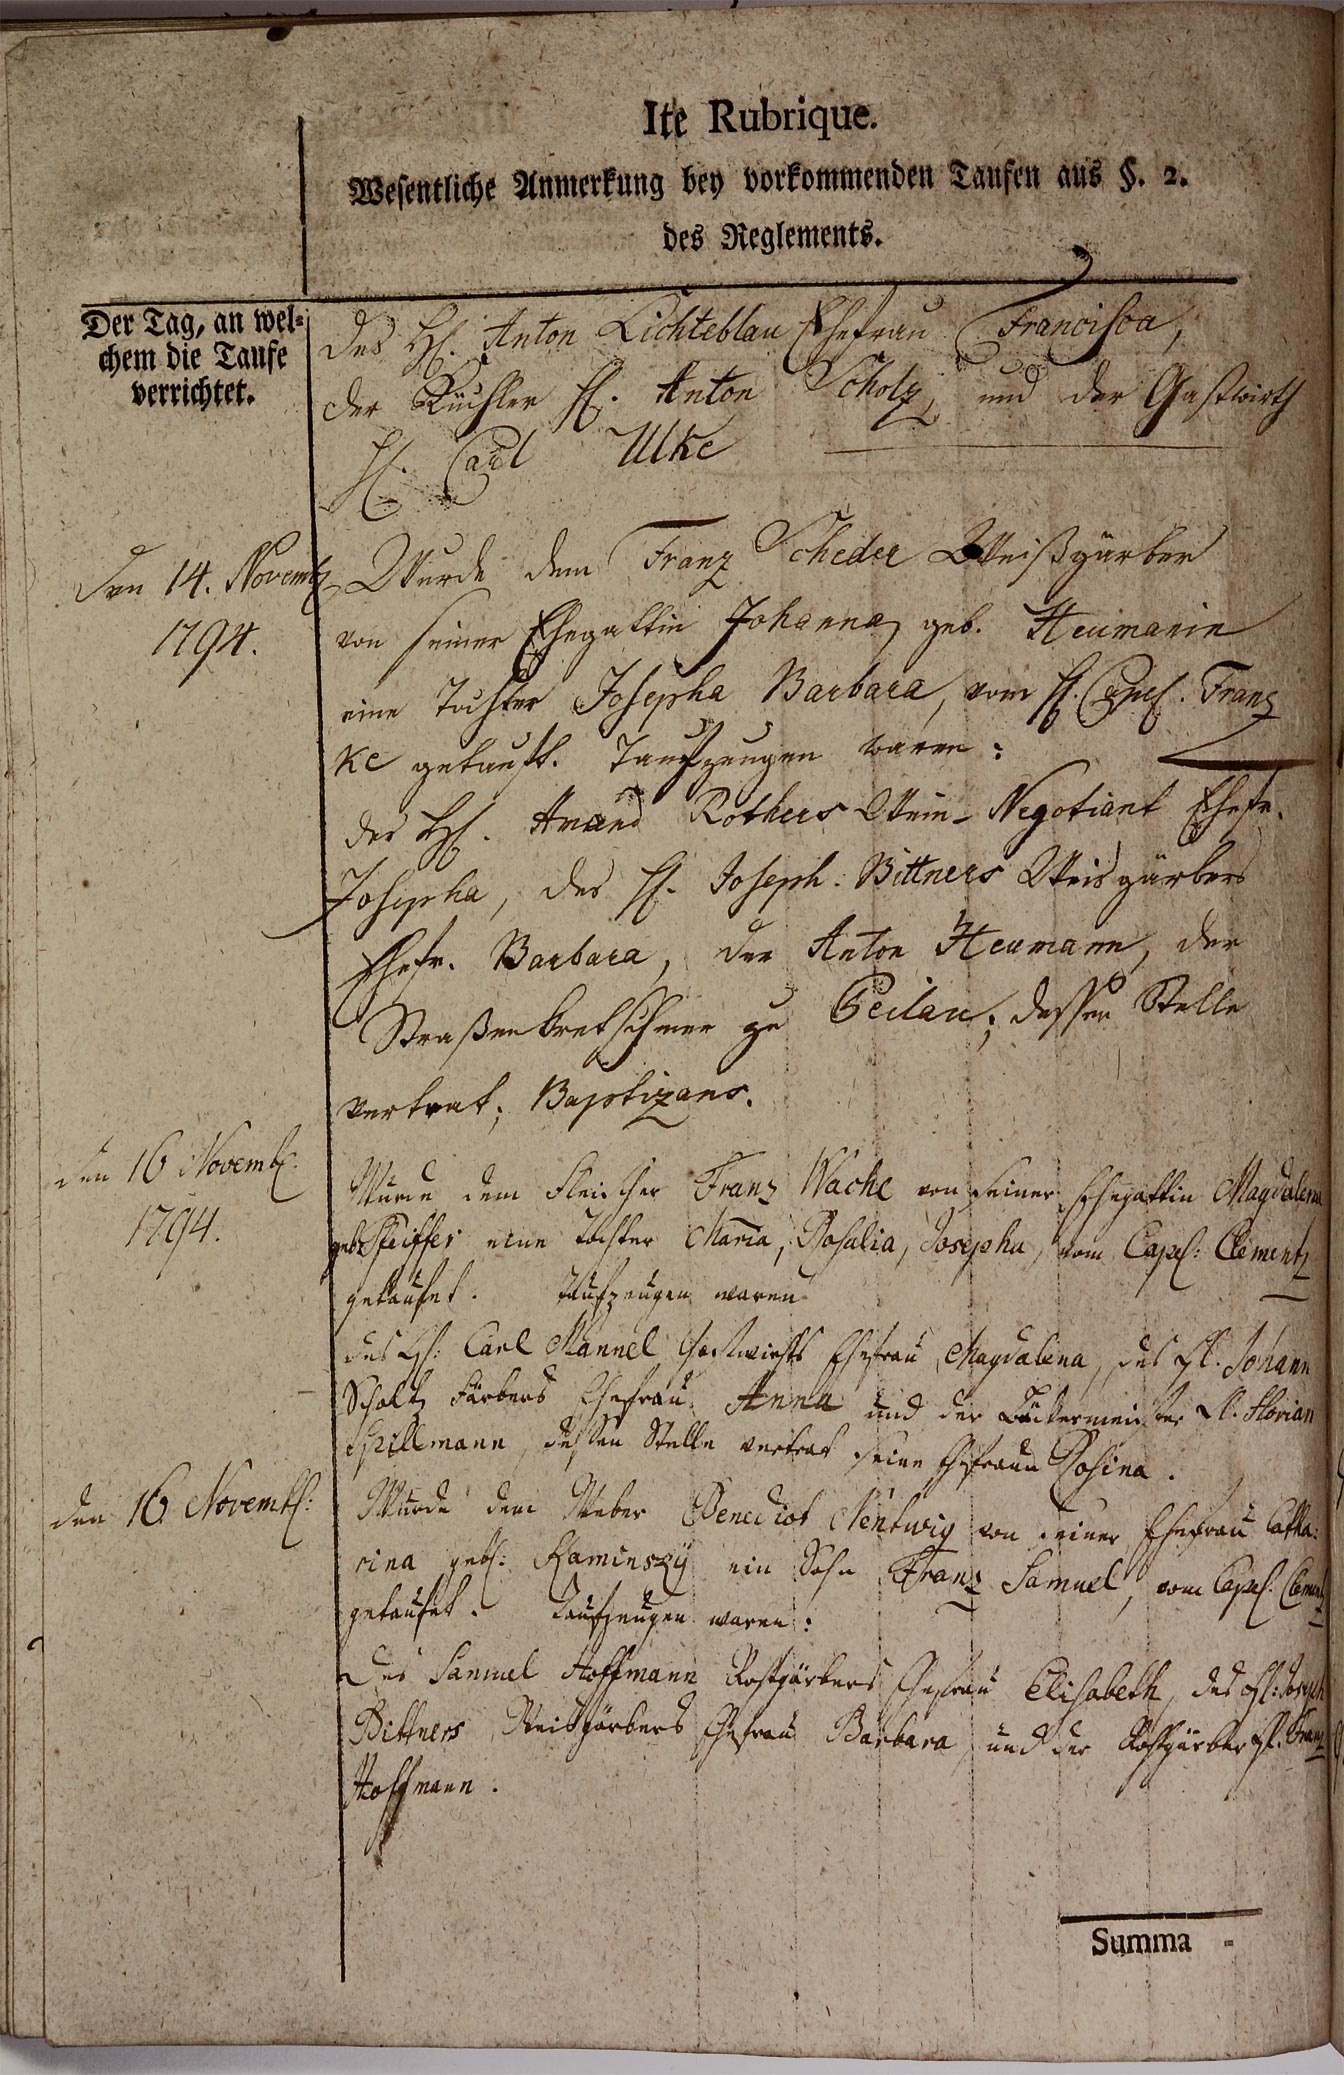 Ite Rubrique.
Wesentliche Anmerkung bey vorkommenden Taufen aus §. 2.
des Reglements.
Der Tag, an wel=
chem die Taufe
verrichtet.
des H. Anton Lichteblau Ehefrau Francisca,
der Küchler H. Anton Scholz, und der Gastwirth
H. Carl Ulke
Den 14. Novemb.
1794.
Wurde dem Franz Scheder Weißgärber
von seiner Ehegattin Johanna, geb. Heumanin
eine Tochter Josepha Barbara, vom H. Capel. Franz
ke getauft. Taufzeugen waren:
des H. Amand Rothers Wein-Negotiant Ehefr.
Josepha, des H. Joseph Bittners Weisgärbers
Ehefr. Barbara, der Anton Heumann, der
Straßenkretschmer zu Peilau; dessen Stelle
vertrat; Baptizans.
den 16 Novemb.
1794.
Wurde dem Fleischer Franz Wache von seiner Ehegattin Magdalena
geb. Pfeiffer eine Tochter Maria, Rosalia, Josepha, vom Capel: Clementz
getaufet. Taufzeugen waren
des H: Carl Mannel Gastwirths Ehefrau Magdalena, des H. Johann
Scholtz Färbers Ehefrau Anna und der Bäckermeister H. Florian
Spillmann, dessen Stelle vertrat seine Ehefrau Rosina.
den 16. Novembr:
Wurde dem Weber Benedict Nentwig von seiner Ehefrau Catha:
rina geb: Kaminszÿ ein Sohn Franz Samuel, vom Capel. Clementz
getaufet. Taufzeugen waren:
Des Samuel Hoffmann Rothgärbers Ehefrau Elisabeth, des H: Joseph
Bittners Weisgärbers Ehefrau Barbara, und der Rothgärber H. Franz
Hoffmann.
Summa -